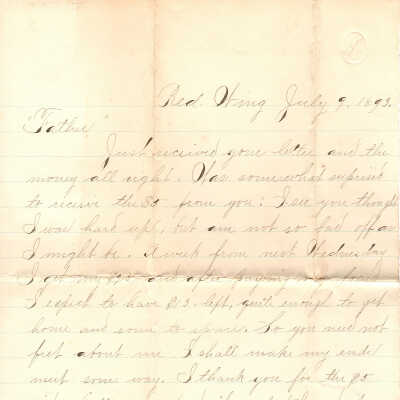 Red Wing July 9, 1893.
"Father"
Just received your letter and the
money all right. Was somewhat suprised
to receive the $5 from you: I see you thought
I was hard up, but am not so bad off as
I might be. A week from next Wednesday
I get my and after paying my
I expect to have $13 left, quite enough to get
home and some to spare. So you need not
fret about me I shall make my ends
meet some way. I thank you for the $5